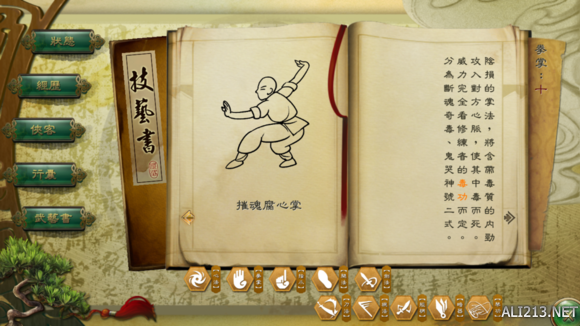 狀態
經歷
俠客
行囊
技藝書
技藝書
摧魂腐心掌
拳掌：十
陰損的掌法，將含帶毒質的內勁
攻入對方心脈，使其中毒而死。
威力完全看修練者的毒功而定。
分為斷魂奇毒、鬼哭神號二式。
ALI213.NET